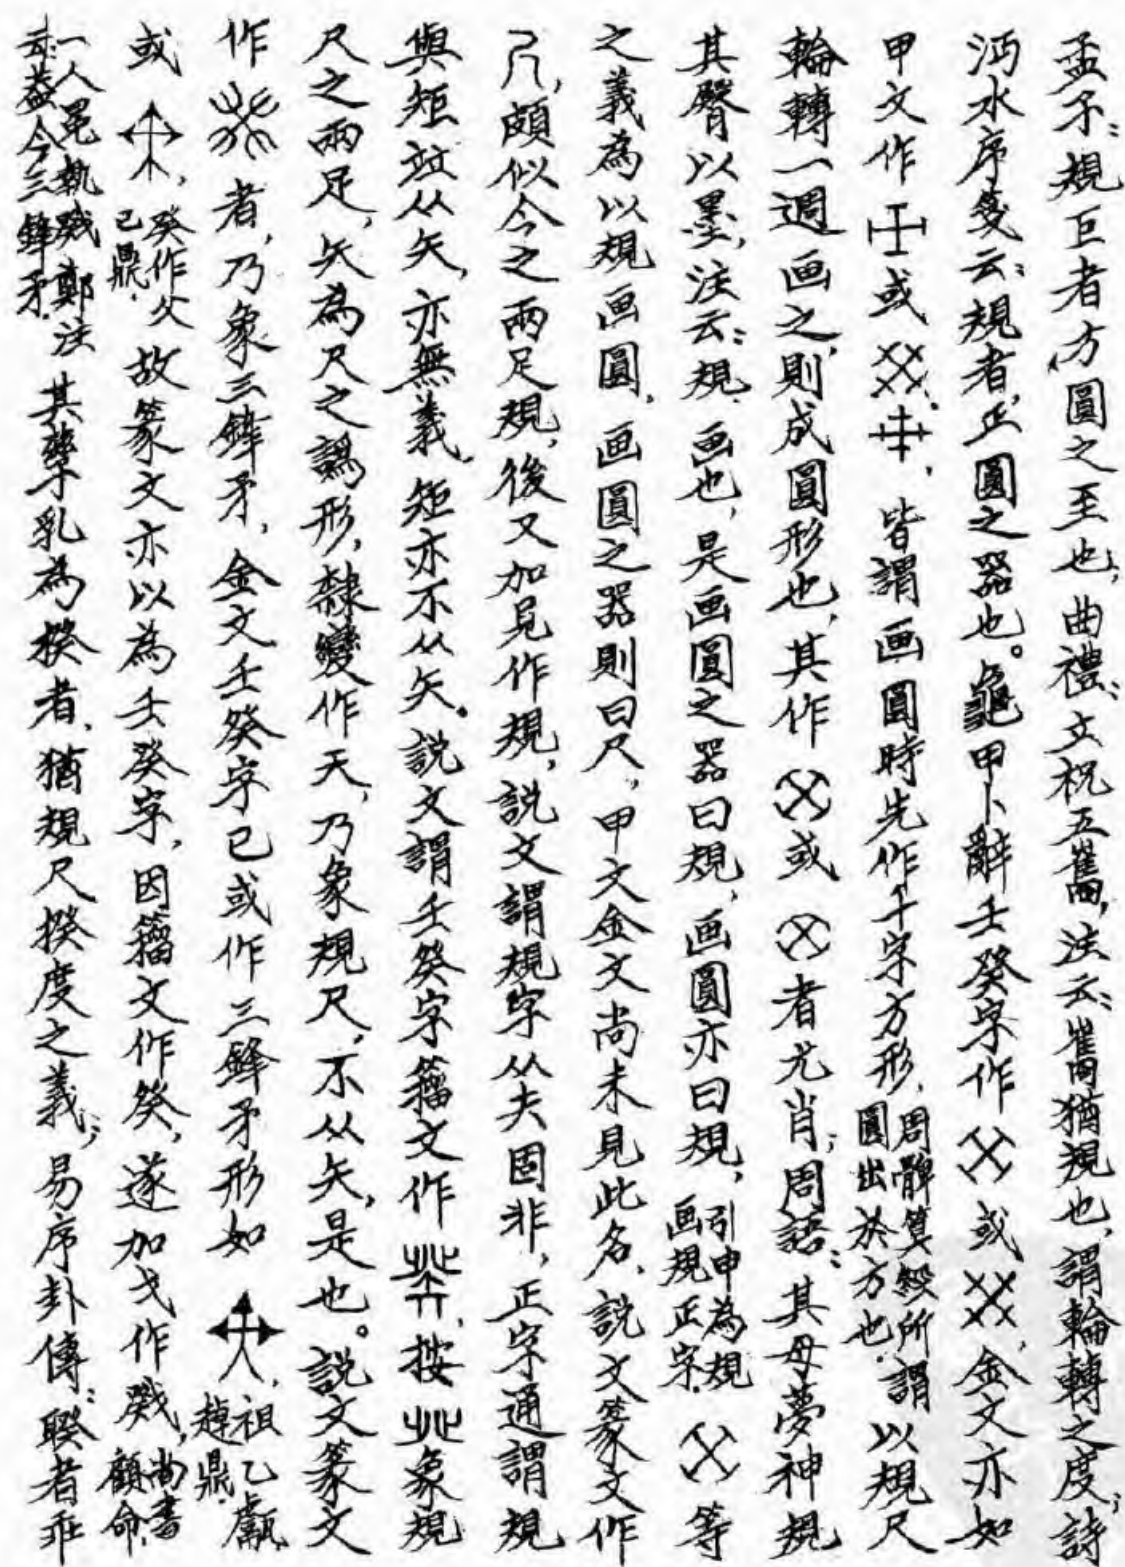 孟子：規巨者方圓之至也，曲禮：立視五巂，注云：巂猶規也，謂輪轉之度；詩
沔水序箋云：規者，正圓之器也。龜甲卜辭壬癸字作或，金文亦如
甲文作或．，皆謂画圓時先作十字方形，周髀算經所謂圓出於方也．以規尺
輪轉一週画之，則成圓形也，其作或者尤肖；周語：其母夢神規
其臀以墨，注云：規．画也，是画圓之器曰規，画圓亦曰規，引申為規画規正字．等
之義為以規画圓．画圓之器則曰尺，甲文金文尚未見此名．説文篆文作
，頗似今之兩足規，後又加見作規，説文謂規字从夫固非，正字通謂規
與矩竝从矢，亦無義．矩亦不从矢．説文謂壬癸字籀文作，按象規
尺之兩足，矢為尺之譌形，隸變作天，乃象規尺，不从矢，是也。説文篆文
作者，乃象三鋒矛，金文壬癸字已或作三鋒矛形如，祖乙甗趞鼎．
或，癸作父己鼎．故篆文亦以為壬癸字，因籀文作癸，遂加戈作戣，尚書顧命．
一人冕執戣鄭注云：蓋今三鋒矛．其孳乳為揆者．猶規尺揆度之義；易序卦傳：睽者乖